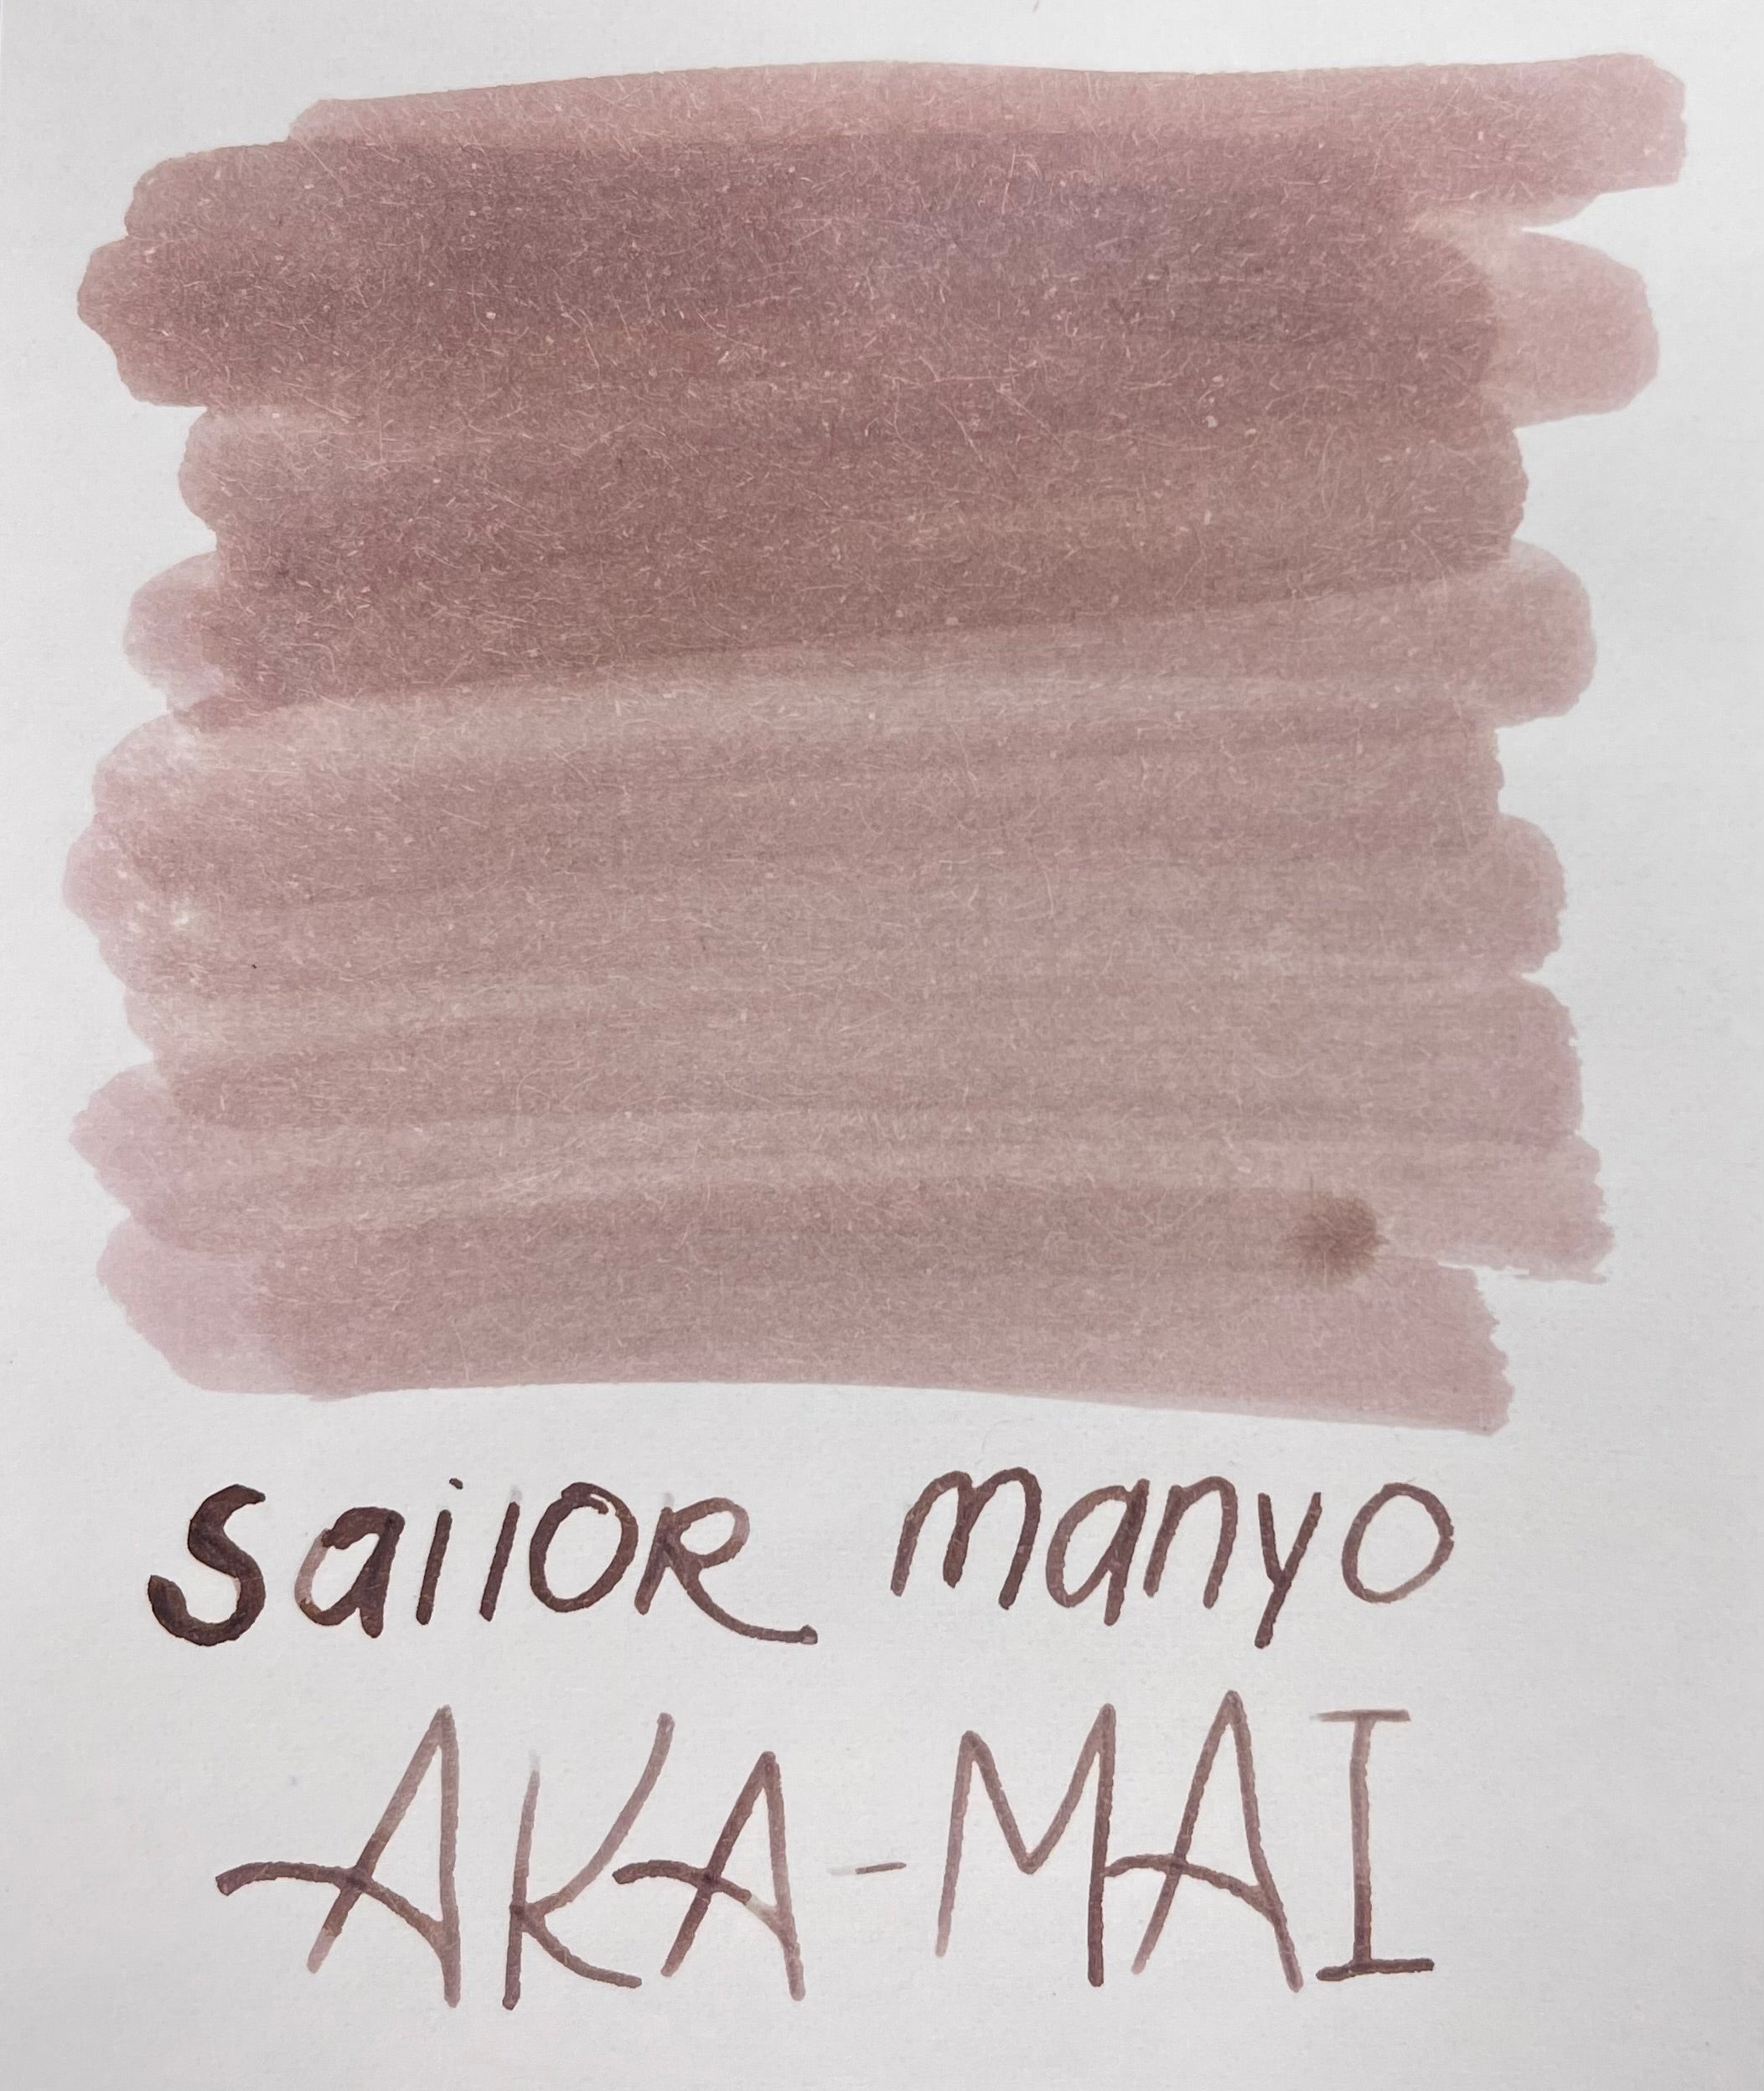 sailor manyo
AKA-MAI